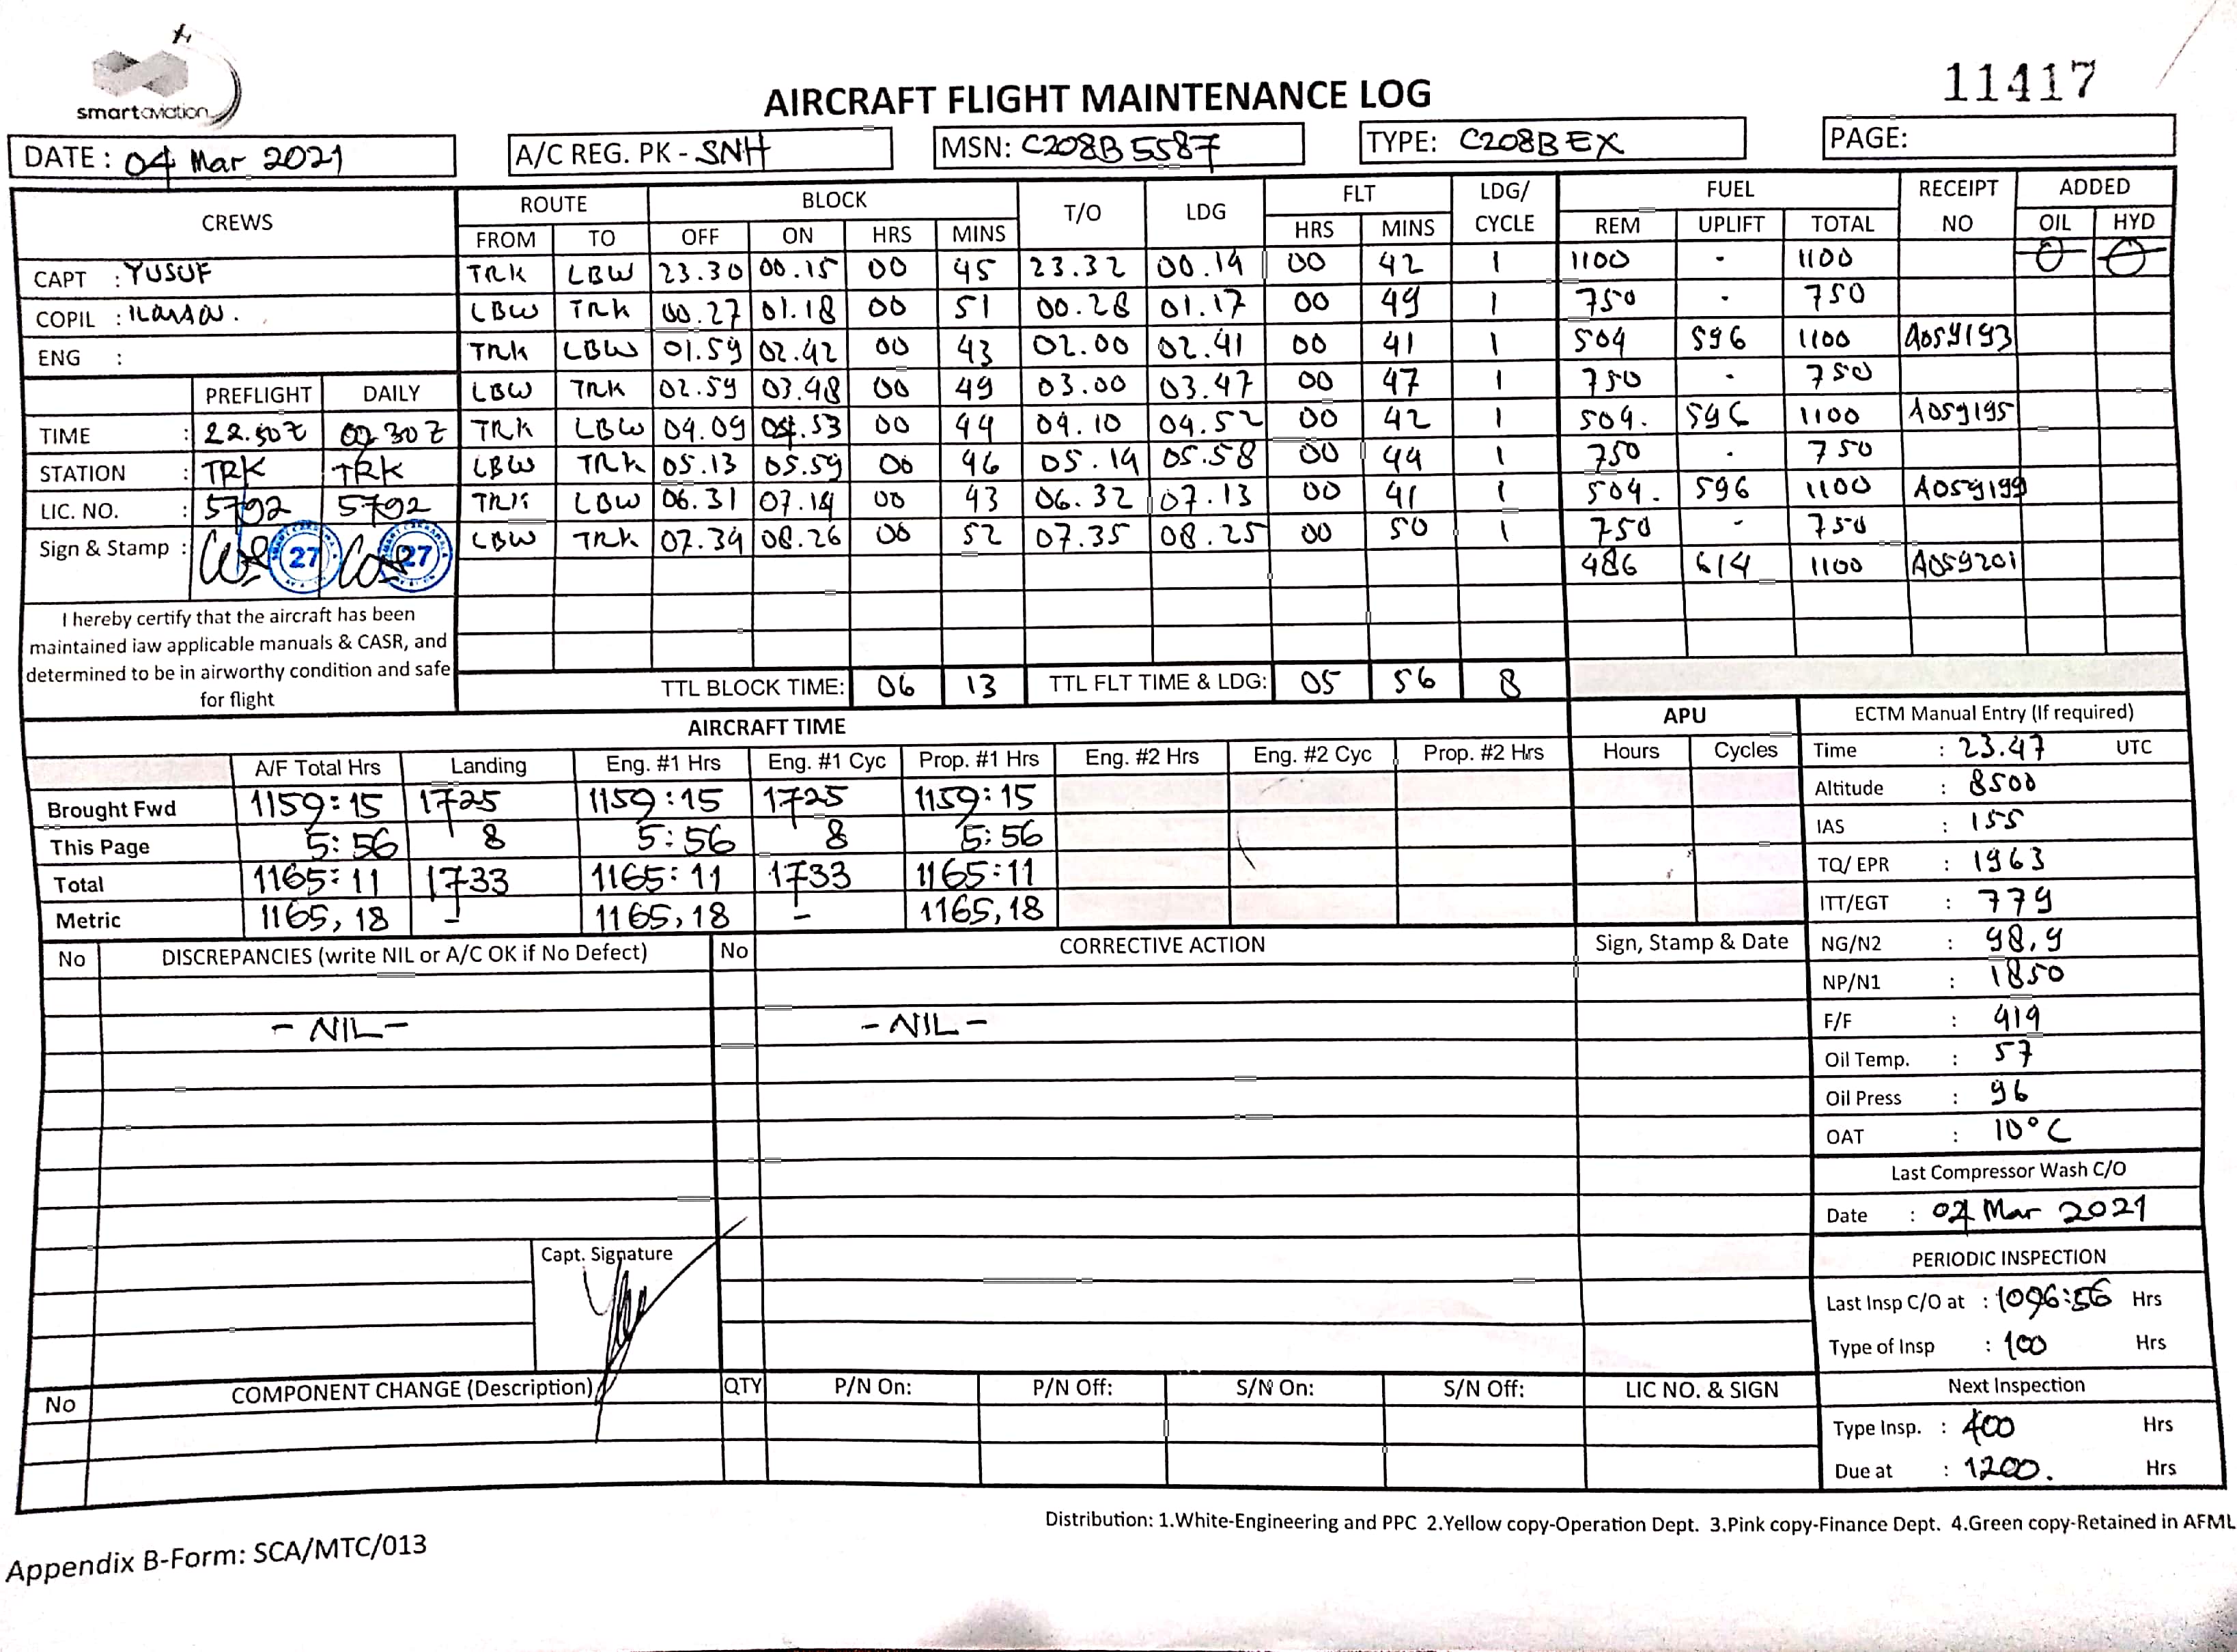 smartaviation
11417
AIRCRAFT FLIGHT MAINTENANCE LOG
DATE : 04 Mar 2021 A/C REG. PK - SNH MSN: C208B5587 TYPE: C208B EX PAGE:
CREWS ROUTE BLOCK T/O LDG FLT LDG/ CYCLE FUEL RECEIPT NO ADDED
FROM TO OFF ON HRS MINS HRS MINS REM UPLIFT TOTAL OIL HYD
CAPT : YUSUF TRK LBW 23.30 00.15 00 45 23.32 00.14 00 42 1 1100 - 1100 0 0
COPIL : LBW TRK 00.27 01.18 00 51 00.28 01.17 00 49 1 750 - 750
ENG : TRK LBW 01.59 02.42 00 43 02.00 02.41 00 41 1 504 596 1100 A059193
PREFLIGHT DAILY LBW TRK 02.59 03.48 00 49 03.00 03.47 00 47 1 750 - 750
TIME : 22.50Z 02.30Z TRK LBW 04.09 04.53 00 44 04.10 04.52 00 42 1 504. 596 1100 A059195
STATION : TRK TRK LBW TRK 05.13 05.59 00 46 05.14 05.58 00 44 1 750 - 750
LIC. NO. : 5792 5792 TRK LBW 06.31 07.14 00 43 06.32 07.13 00 41 1 504. 596 1100 A059199
Sign & Stamp : 27 27 LBW TRK 07.34 08.26 00 52 07.35 08.25 00 50 1 750 - 750
486 614 1100 A059201
I hereby certify that the aircraft has been
maintained iaw applicable manuals & CASR, and
determined to be in airworthy condition and safe
for flight
TTL BLOCK TIME: 06 13 TTL FLT TIME & LDG: 05 56 8
AIRCRAFT TIME APU ECTM Manual Entry (If required)
A/F Total Hrs Landing Eng. #1 Hrs Eng. #1 Cyc Prop. #1 Hrs Eng. #2 Hrs Eng. #2 Cyc Prop. #2 Hrs Hours Cycles Time : 23.47 UTC
Brought Fwd 1159:15 1725 1159:15 1725 1159:15 Altitude : 8500
This Page 5:56 8 5:56 8 5:56 IAS : 155
Total 1165:11 1733 1165:11 1733 1165:11 TQ/ EPR : 1963
Metric 1165,18 - 1165,18 - 1165,18 ITT/EGT : 779
No DISCREPANCIES (write NIL or A/C OK if No Defect) No CORRECTIVE ACTION Sign, Stamp & Date NG/N2 : 98,9
NP/N1 : 1850
- NIL - - NIL - F/F : 419
Oil Temp. : 57
Oil Press : 96
OAT : 10°C
Last Compressor Wash C/O
Date : 04 Mar 2021
Capt. Signature PERIODIC INSPECTION
Last Insp C/O at : 1096:56 Hrs
Type of Insp : 100 Hrs
No COMPONENT CHANGE (Description) QTY P/N On: P/N Off: S/N On: S/N Off: LIC NO. & SIGN Next Inspection
Type Insp. : 400 Hrs
Due at : 1200. Hrs
Distribution: 1.White-Engineering and PPC 2.Yellow copy-Operation Dept. 3.Pink copy-Finance Dept. 4.Green copy-Retained in AFML
Appendix B-Form: SCA/MTC/013